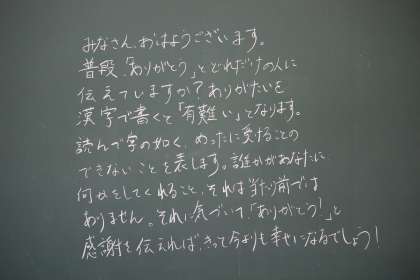 みなさん、おはようございます。
普段、「ありがとう」とどれだけの人に
伝えていますか?ありがたいを
漢字で書くと「有難い」となります。
読んで字の如く、めったに受けることの
できないことを表します。誰かがあなたに
何かをしてくれること、それは当たり前では
ありません。それに気づいて、「ありがとう!」と
感謝を伝えれば、きっと今よりも幸せになるでしょう!